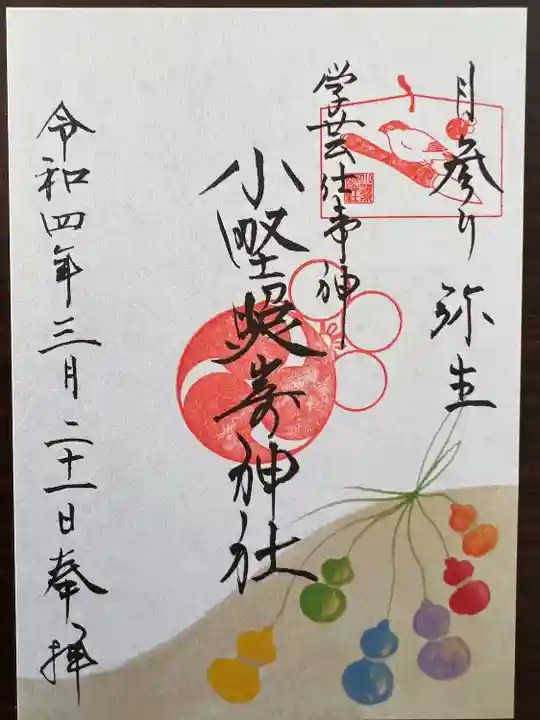 月参り 弥生
学芸仕事神
小野照崎神社
令和四年三月二十一日奉拝